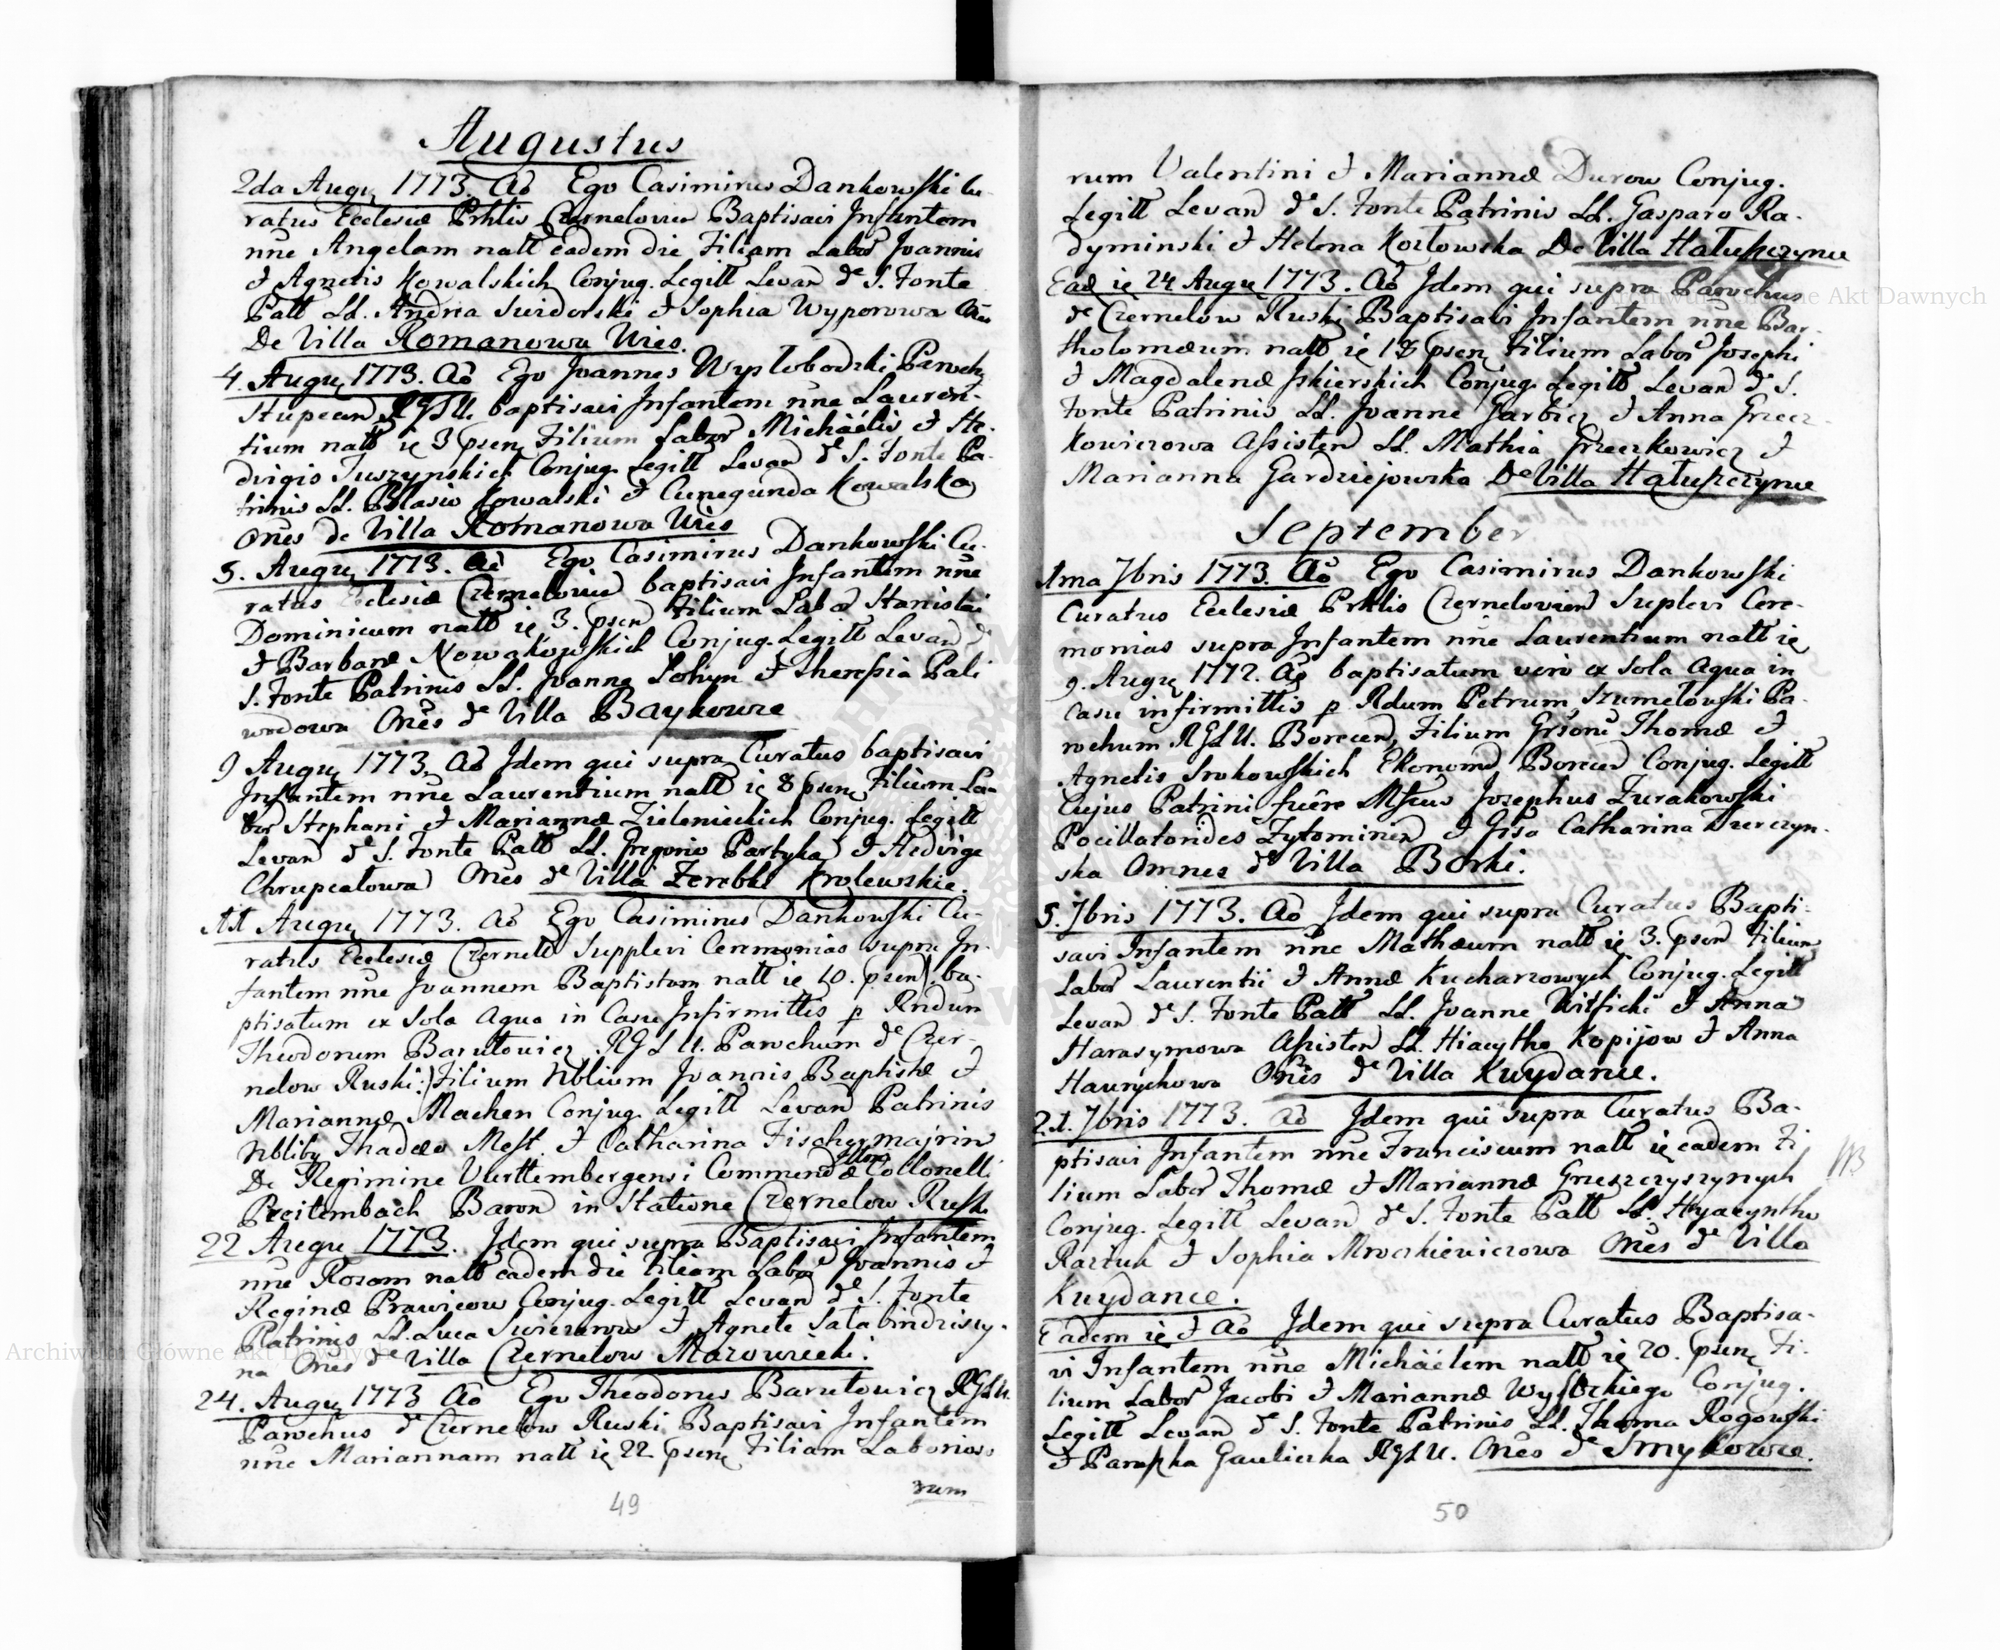 Augustus
2da Augu 1773. Ao Ego Casimirus Dankowski Cu-
ratus Ecclesiæ Prhlis Czernelovien Baptisavi Infantem
nne Angelam natt eadem die Filiam Labor Joannis
& Agnetis Kowalskich Conjug. Legitt Levan de S. Fonte
Patt LL. Andrea Swiderski & Sophia Wyporowa Oes
De Villa Romanowa Uies.
4. Augu 1773. Ao Ego Joannes Wyslobodzki Paroch
Stupecen RGLU. baptisavi Infantem nne Lauren-
tium natt ie 3 psen Filium Labor Michäelis & He-
dvigis Tuszynskich Conjug. Legitt Levan de S. Fonte Pa-
trinis LL. Blasio Kowalski & Cunegunda Kowalska
Ones de Villa Romanowa Uies
5. Augu 1773. Ao Ego Casimirus Dankowski Cu-
ratus Eclesiæ Czernelovien baptisavi Infantem nne
Dominicum natt ie 3. psen Filium Labor Stanislai
& Barbaræ Nowakowskich Conjug. Legitt Levan de
S. Fonte Patrinis LL. Joanne Lohyn & Theresia Pali
wodowa Ones de Villa Baykowce
9 Augu 1773. Ao Idem qui supra Curatus baptisavi
Infantem nne Laurentium natt ie 8 psen Filium La-
bor Stephani & Mariannæ Zielenieckich Conjug. Legitt
Levan de S. Fonte Patt LL. Gregorio Partyka & Hedvige
Chrupcatowa Ones de Villa Zerebki Krolewskie.
11 Augu 1773. Ao Ego Casimirus Dankowski Cu-
ratus Ecclesiæ Czernelo Supplevi Ceremonias supra In-
fantem nne Joannem Baptistam natt ie 10. psen ba-
ptisatum ex Sola Aqua in Casu Infirmittis p Rndum
Theodorum Barutowicz RGLU. Parochum de Czer-
nelow Ruski:) Filium Nblium Joannis Baptistæ &
Mariannæ Machen Conjug. Legitt Levan Patrinis
Nblibus Thadæo Mest. & Catharina Fischermajrin
De Regimine Vurttembergensi Commendæ Illmi Collonelli
Preitembach Baron in Statione Czernelow Ruski
22 Augu 1773. Idem qui supra Baptisavi Infantem
nne Rosam natt eadem die Filiam Labor Joannis &
Reginæ Prawicow Conjug. Legitt Levan de S. Fonte
Patrinis LL. Luca Swierzowu & Agnete Satabindziszy-
na Ones de Villa Czernelow Mazowiecki.
24. Augu 1773 Ao Ego Theodorus Barutowicz RGLU.
Parochus de Czernelow Ruski Baptisavi Infantem
nne Mariannam natt ie 22 psen Filiam Laborioso
rum
49
rum Valentini & Mariannæ Durow Conjug.
Legitt Levan de S. Fonte Patrinis LL. Gasparo Ra-
dyminski & Helena Kozlowska De Villa Haluszczynce
Ead ie 24 Augu 1773. Ao Idem qui supra Parochus
de Czernelow Ruski Baptisavi Infantem nne Bar-
tholomæum natt ie 13 psen Filium Labor Josephi
& Magdalenæ Iskierskich Conjug. Legitt Levan de S.
Fonte Patrinis LL. Joanne Garbicz & Anna Grecz-
kowiczowa Assisten LL. Mathia Greczkowicz &
Marianna Gardziejowska De Villa Haluszczynce
September
1ma 7bris 1773. Ao Ego Casimirus Dankowski
Curatus Ecclesiæ Prhlis Czernelovien Suplevi Cere-
monias supra Infantem nne Laurentium natt ie
9. Augu 1772. Ao baptisatum vero ex Sola Aqua in
casu infirmittis p Rdum Petrum Szumelowski Pa-
rochum RGLU. Borecen Filium Grsorum Thomæ &
Agnetis Srokowskich Ekonomo Borecen Conjug. Legitt
Cujus Patrini fuere Mfcus Josephus Zurakowski
Pocillatorides Zytominien & Gfsa Catharina Dzerczyn-
ska Omnes de Villa Borki.
5. 7bris 1773. Ao Idem qui supra Curatus Bapti-
savi Infantem nne Mathæum natt ie 3. psen Filium
Labor Laurentii & Annæ Kucharzowych Conjug. Legitt
Levan de S. Fonte Patt LL. Joanne Wilficki & Anna
Harasymowa Assisten LL. Hiacytho Kopijow & Anna
Hawrychowa Ones de Villa Kuydance.
21. 7bris 1773. Ao Idem qui supra Curatus Ba-
ptisavi Infantem nne Franciscum natt ie eadem Fi
lium Labor Thomæ & Mariannæ Grueszczyszynych
Conjug. Legitt Levan de S. Fonte Patt LL. Hyacyntho
Raztuk & Sophia Mroczkiewiczowa Ones de Villa
Kuydance.
NB
Eadem ie & Ao Idem qui supra Curatus Baptisa-
vi Infantem nne Michäelem natt ie 20. psen Fi-
lium Labor Jacobi & Mariannæ Wysockiego Conjug.
Legitt Levan de S. Fonte Patrinis LL. Thoma Rogowski
& Paraska Gaulicka RGLU. Ones de Smykowce.
50
Archiwum Główne Akt Dawnych
Archiwum Główne Akt Dawnych